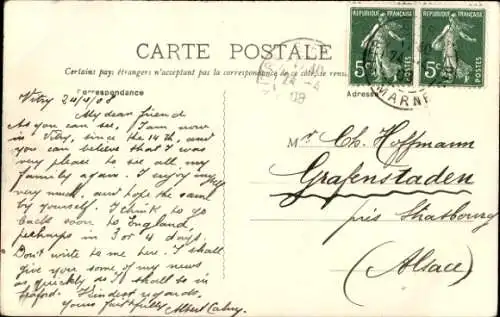 RÉPUBLIQUE FRANÇAISE RÉPUBLIQUE FRANÇAISE
5c POSTES 5c POSTES
MARNE
CARTE POSTALE
Certains pays étrangers n'acceptent pas la correspondance de ce côté, le rens
Correspondance
Adresse
Vitry 24/4/08
My dear friend
As you can see, I am now
in Vitry, since the 14th, and
you can believe that I was
very please to see all my
family again. I enjoy myself
very much, and hope the same
by yourself. I think to go
back soon to England,
perhaps in 3 or 4 days.
Don't write to me here. I shall
give you some of my news
as quickly as I shall be in
Kindest regards.
Yours faithfully
Albert
Mr Ch. Hoffmann
Grafenstaden
près Strasbourg
(Alsace)